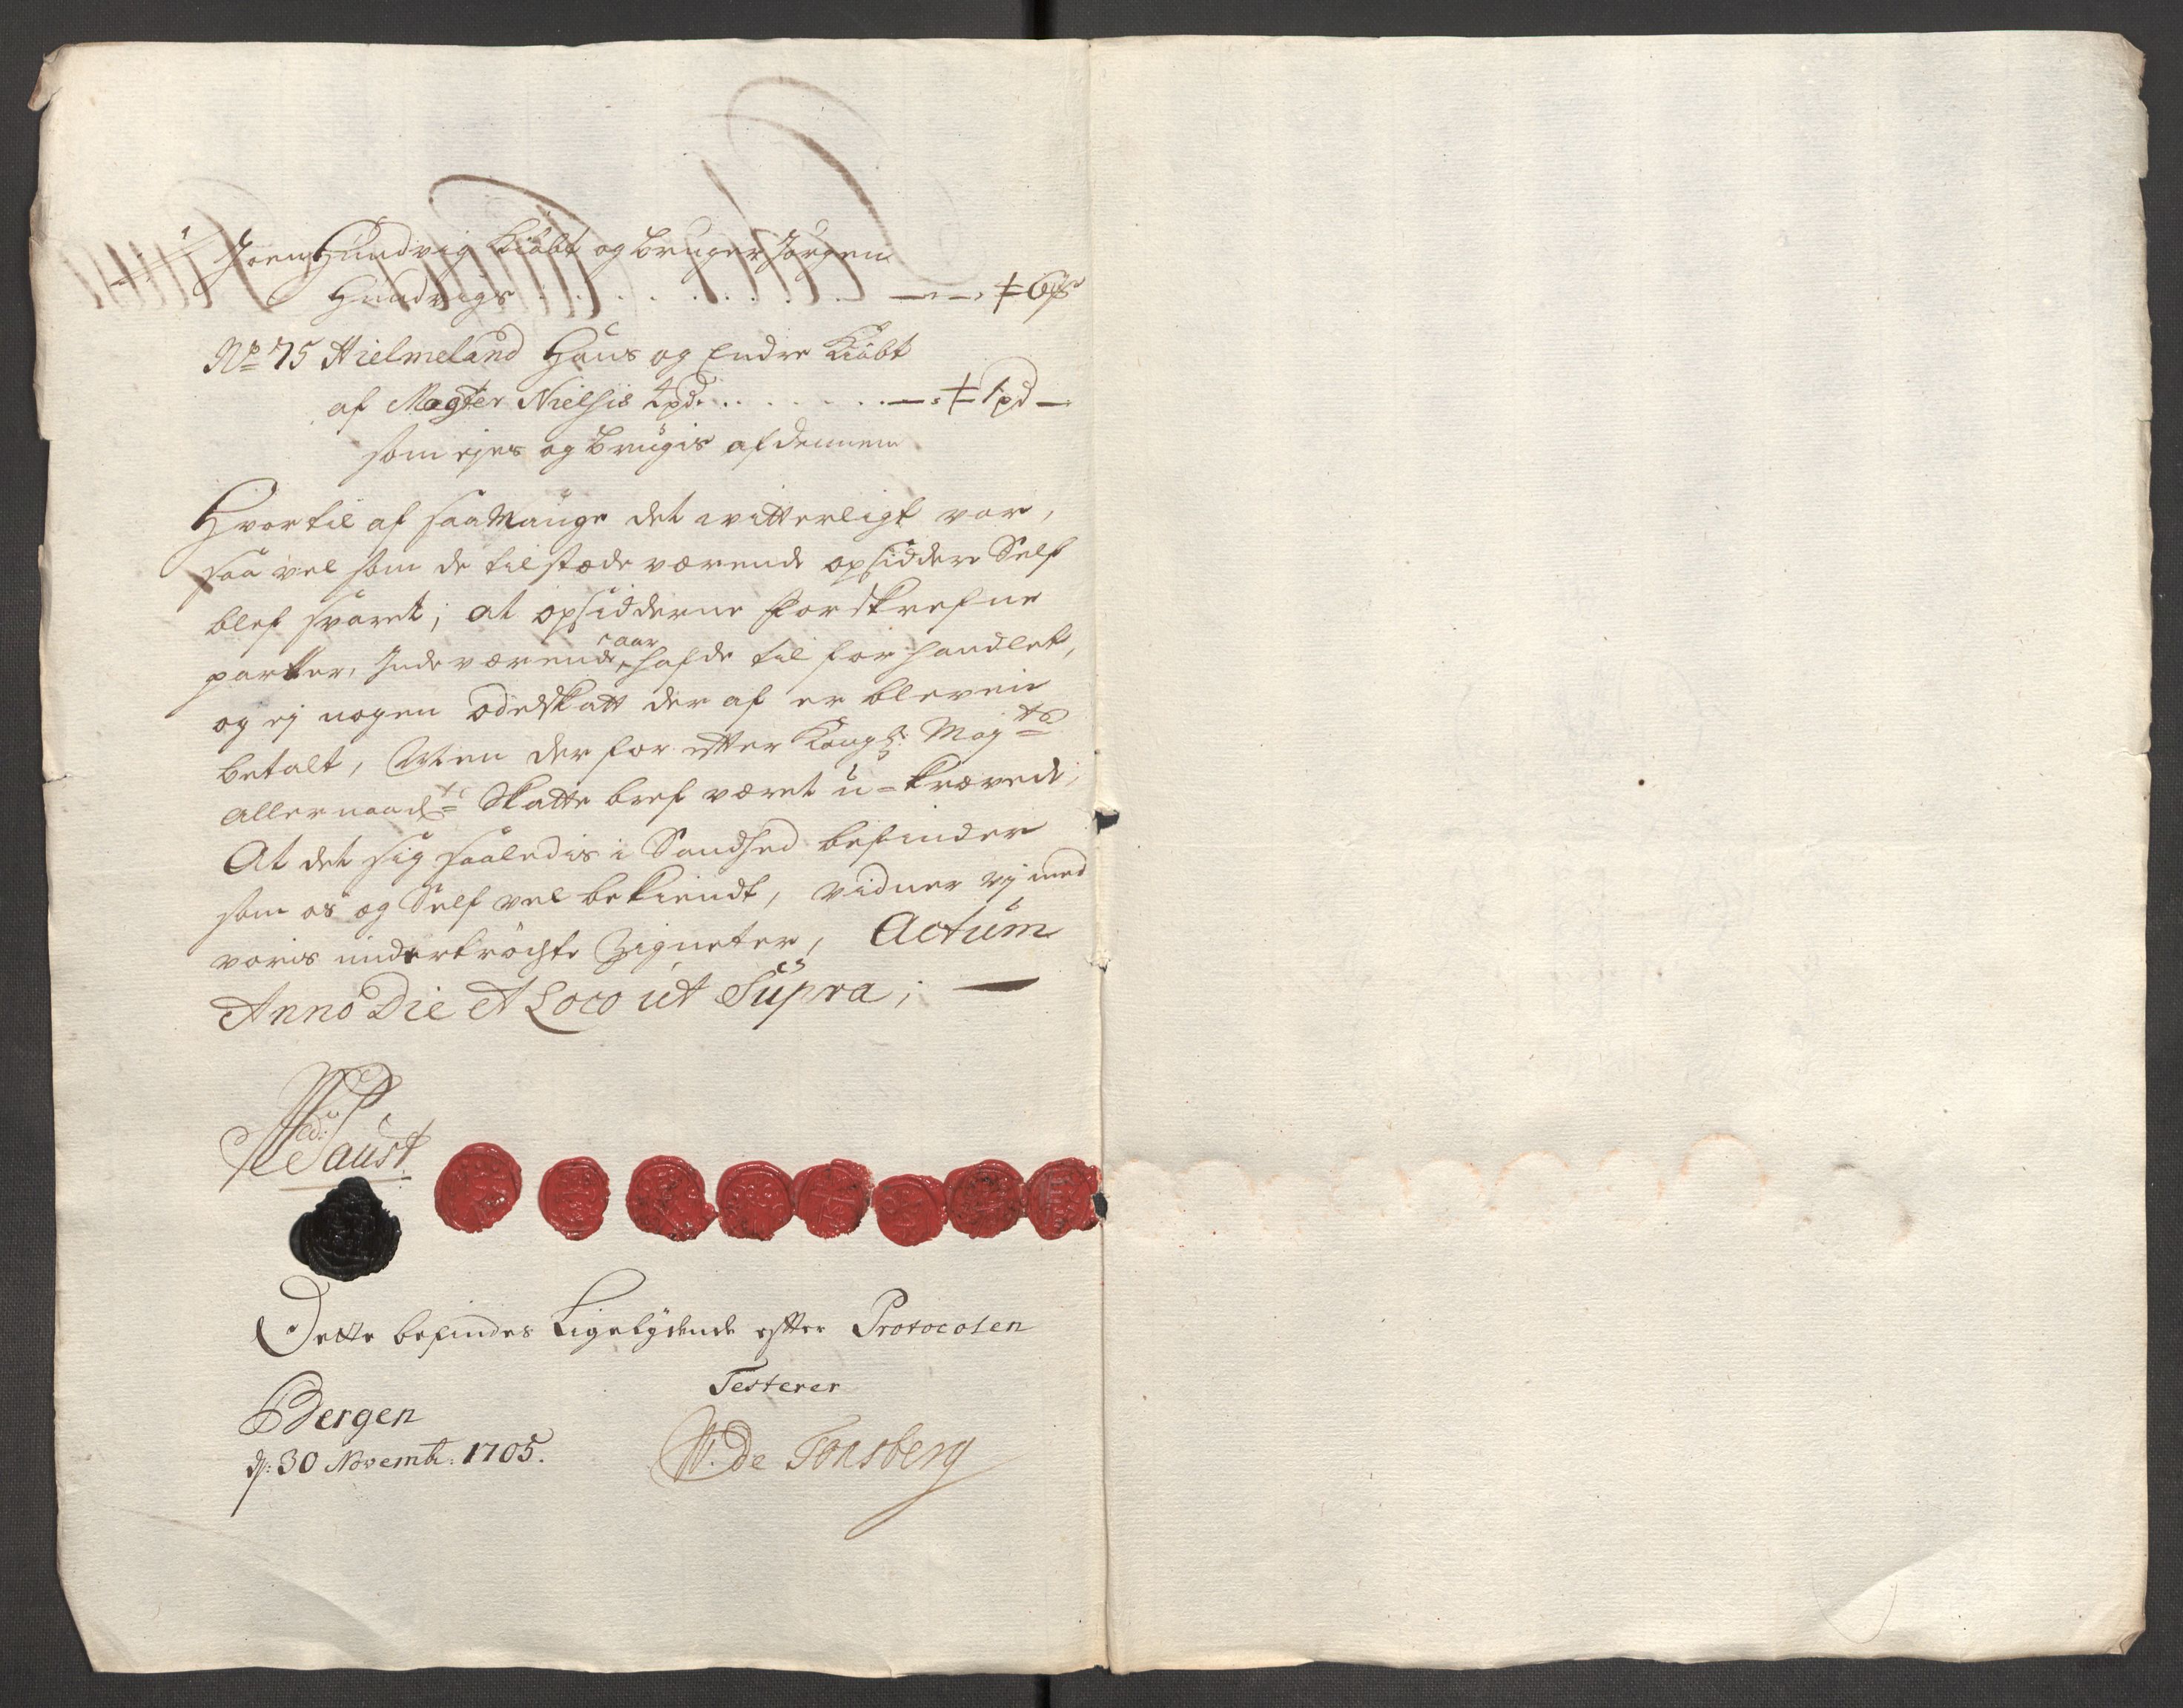 Joen Hundvig Kiøbt og bruger Jørgen
Hundvigs . . . . . . . . . .
No 75 Hielmeland Hans og Endre Kiøbt
af Magter Nielsis . . . . . . 1 pd
som ejes og brugis af dennem
Hvortil af saa Mange det witterligt var,
saa vel som de tilstæde værende opsiddere Self
blef svaret; at opsidderne forskrefne
parter, Indeværende aar hafde til forhandlet,
og ej nogen odelskatt der af er blevein
betalt, Men der for efter Kongl: Maj ts
allernaad te Skatte bref været u-krævede;
At det sig saaledis i Sandhed befinder
som os og Self vel bekiendt, vidner vj med
voris undertrøchte Zigneter, Actum
Anno Die et Loco ut Supra;
Faust
Dette befindes Ligelydende efter Protocolen
Testerer
Bergen
d: 30 Novemb: 1705.
W. De Tonsberg